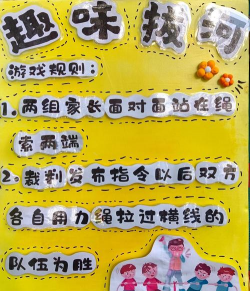 趣味拔河
游戏规则:
1.两组家长面对面站在绳
索两端
2.裁判发布指令以后双方
各自用力绳拉过横线的
队伍为胜